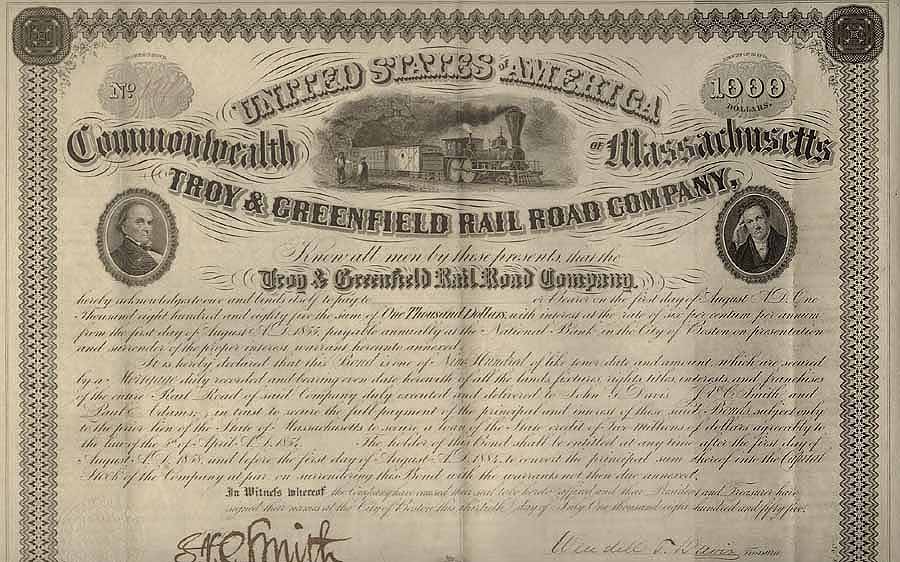 UNITED STATES OF AMERICA
No
1000
DOLLARS.
Commonwealth OF Massachusetts
TROY & GREENFIELD RAIL ROAD COMPANY,
Know all men by these presents, that the
Troy & Greenfield Rail Road Company.
hereby acknowledges to owe and binds itself to pay to or bearer on the first day of August A.D. One
Thousand eight hundred and eighty five the sum of One Thousand Dollars, with interest at the rate of six per centum per annum
from the first day of August A.D. 1855, payable annually at the National Bank in the City of Boston on presentation
and surrender of the proper interest warrant hereunto annexed.
It is hereby declared that this Bond is one of Nine Hundred of like tenor date and amount, which are secured
by a Mortgage duly recorded and bearing even date herewith of all the lands, fixtures, rights, titles, interests and franchises
of the entire Rail Road of said Company duly executed and delivered to John G. Davis Smith and
Paul Adams, in trust to secure the full payment of the principal and interest of these said Bonds, subject only
to the prior lien of the State of Massachusetts to secure a loan of the State credit of two Millions of dollars agreeably to
the law of the 5th of April A.D. 1854. The holder of this Bond shall be entitled at any time after the first day of
August A.D. 1858, and before the first day of August A.D. 1884, to convert the principal sum thereof into the Capital
Stock of the Company at par on surrendering this Bond with the warrants not then due annexed.
In Witness whereof the Company have caused their seal to be hereto affixed and their President and Treasurer have
signed their names at the City of Boston this day of July One thousand eight hundred and fifty five.
Smith
Wendell T. Davis Treasurer